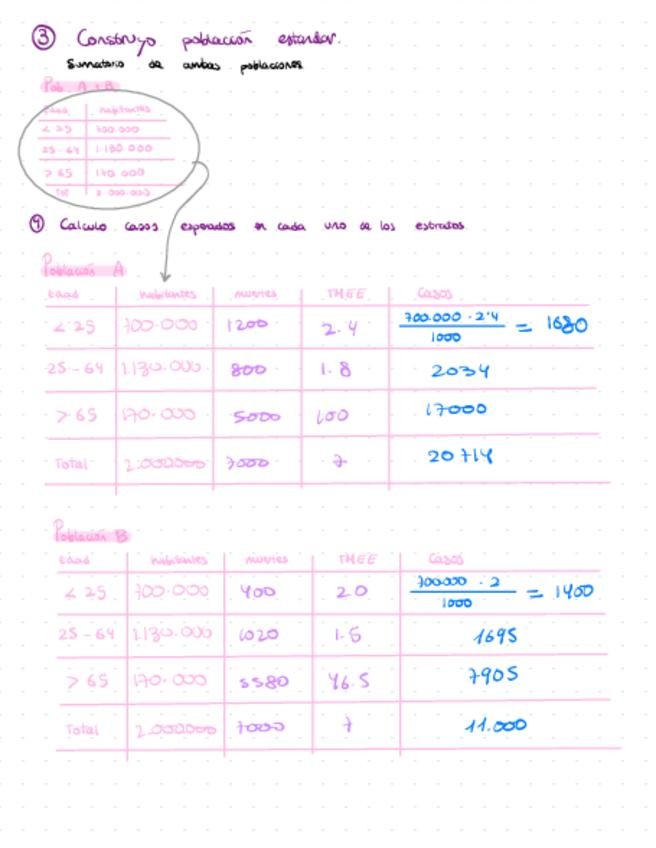 ③ Construyo población estandar.
Sumatorio de ambas poblaciones
Pob. A + B
Edad habitantes
< 25 700.000
25-64 1.130.000
> 65 170.000
Tot 2.000.000
④ Calculo casos esperados en cada uno de los estratos
Población A
Edad habitantes muertes TMEE Casos
< 25 700.000 1200 2.4 700.000 · 2'4 / 1000 = 1680
25-64 1.130.000 800 1.8 2034
> 65 170.000 5000 100 17000
Total 2.000.000 7000 7 20714
Población B
Edad habitantes muertes TMEE Casos
< 25 700.000 400 20 700000 · 2 / 1000 = 1400
25-64 1.130.000 1020 1.5 1695
> 65 170.000 5580 46.5 7905
Total 2.000.000 7000 7 11.000